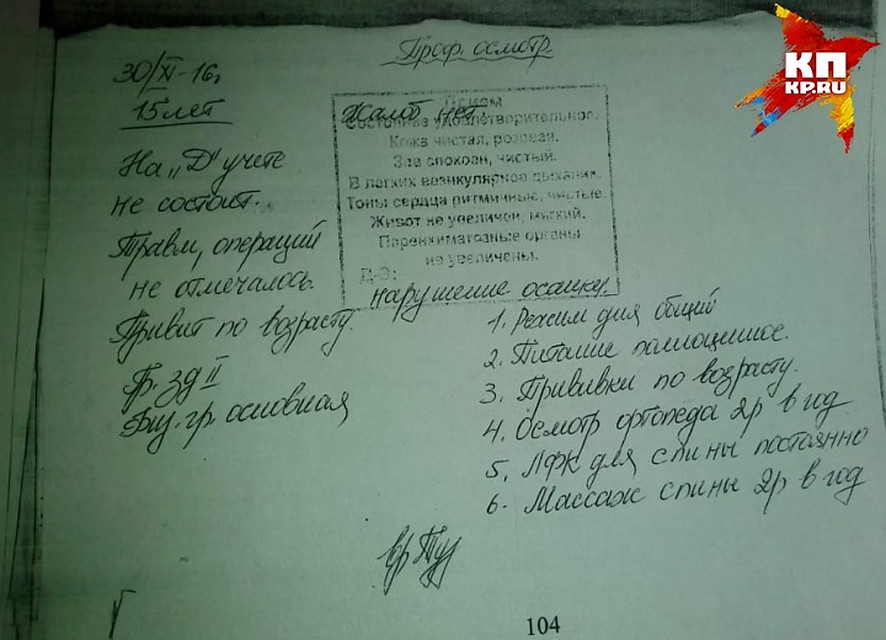 Проф. осмотр.
КП
KP.RU
30/XI-16г
15 лет
На "Д" учете
не состоит.
Травм, операций
не отмечалось.
Привит по возрасту.
Гр. зд II
Физ. гр. основная
Прием
Жалоб нет.
Состояние удовлетворительное.
Кожа чистая, розовая.
Зев спокоен, чистый.
В легких везикулярное дыхание.
Тоны сердца ритмичные, чистые.
Живот не увеличен, мягкий.
Паренхиматозные органы
не увеличены.
Д-З:
нарушение осанки.
1. Режим дня общий
2. Питание полноценное.
3. Прививки по возрасту.
4. Осмотр ортопеда 2р в год
5. ЛФК для спины постоянно
6. Массаж спины 2р в год
вр
104